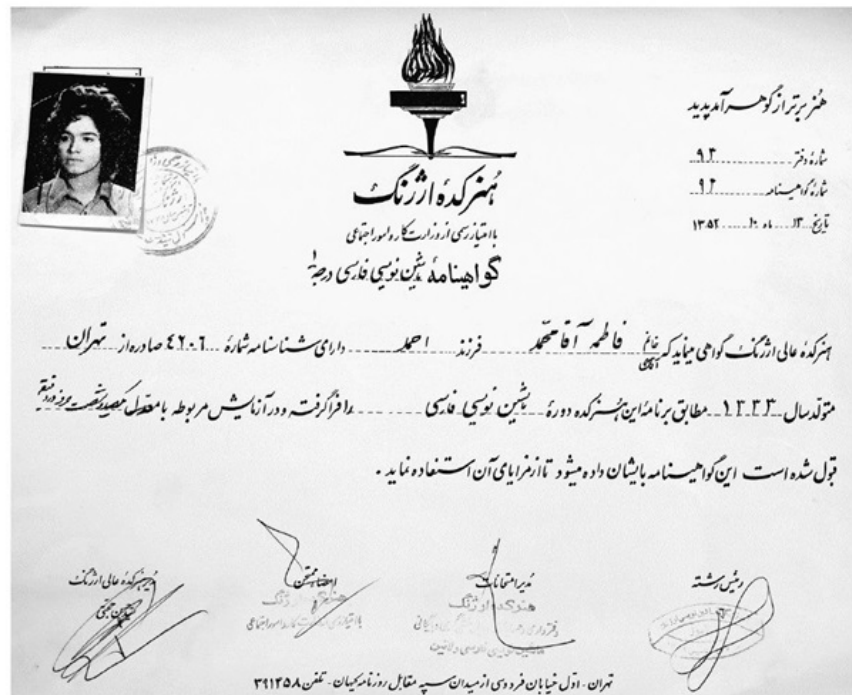 هنر برتر از گوهر آمد پدید
شمارهٔ دفتر ۹۴
شمارهٔ گواهینامه ۹۴
تاریخ ۱۳ ماه ۱۰ ۱۳۵۲
هنرکده ارژنگ
با امتیاز رسمی از وزارت کار و امور اجتماعی
گواهینامهٔ ماشین نویسی فارسی درجه ۱
هنرکده عالی ارژنگ گواهی مینماید که خانم آقای فاطمه آقامحمد فرزند احمد دارای شناسنامه شمارهٔ ۴۲۰۶ صادره از تهران
متولد سال ۱۳۳۳ مطابق برنامه این هنرکده دورهٔ ماشین نویسی فارسی را فرا گرفته و در آزمایش مربوطه با معدل یکصد و شصت حرف در دقیقه
قبول شده است این گواهینامه بایشان داده میشود تا از مزایای آن استفاده نماید .
رئیس رشته
مدیر امتحانات
هنرکده ارژنگ
امضاء ممتحن
هنرکده ارژنگ
مدیر هنرکدهٔ عالی ارژنگ
تهران - اول خیابان فردوسی از میدان سپه مقابل روزنامه کیهان - تلفن ۳۹۱۲۵۸